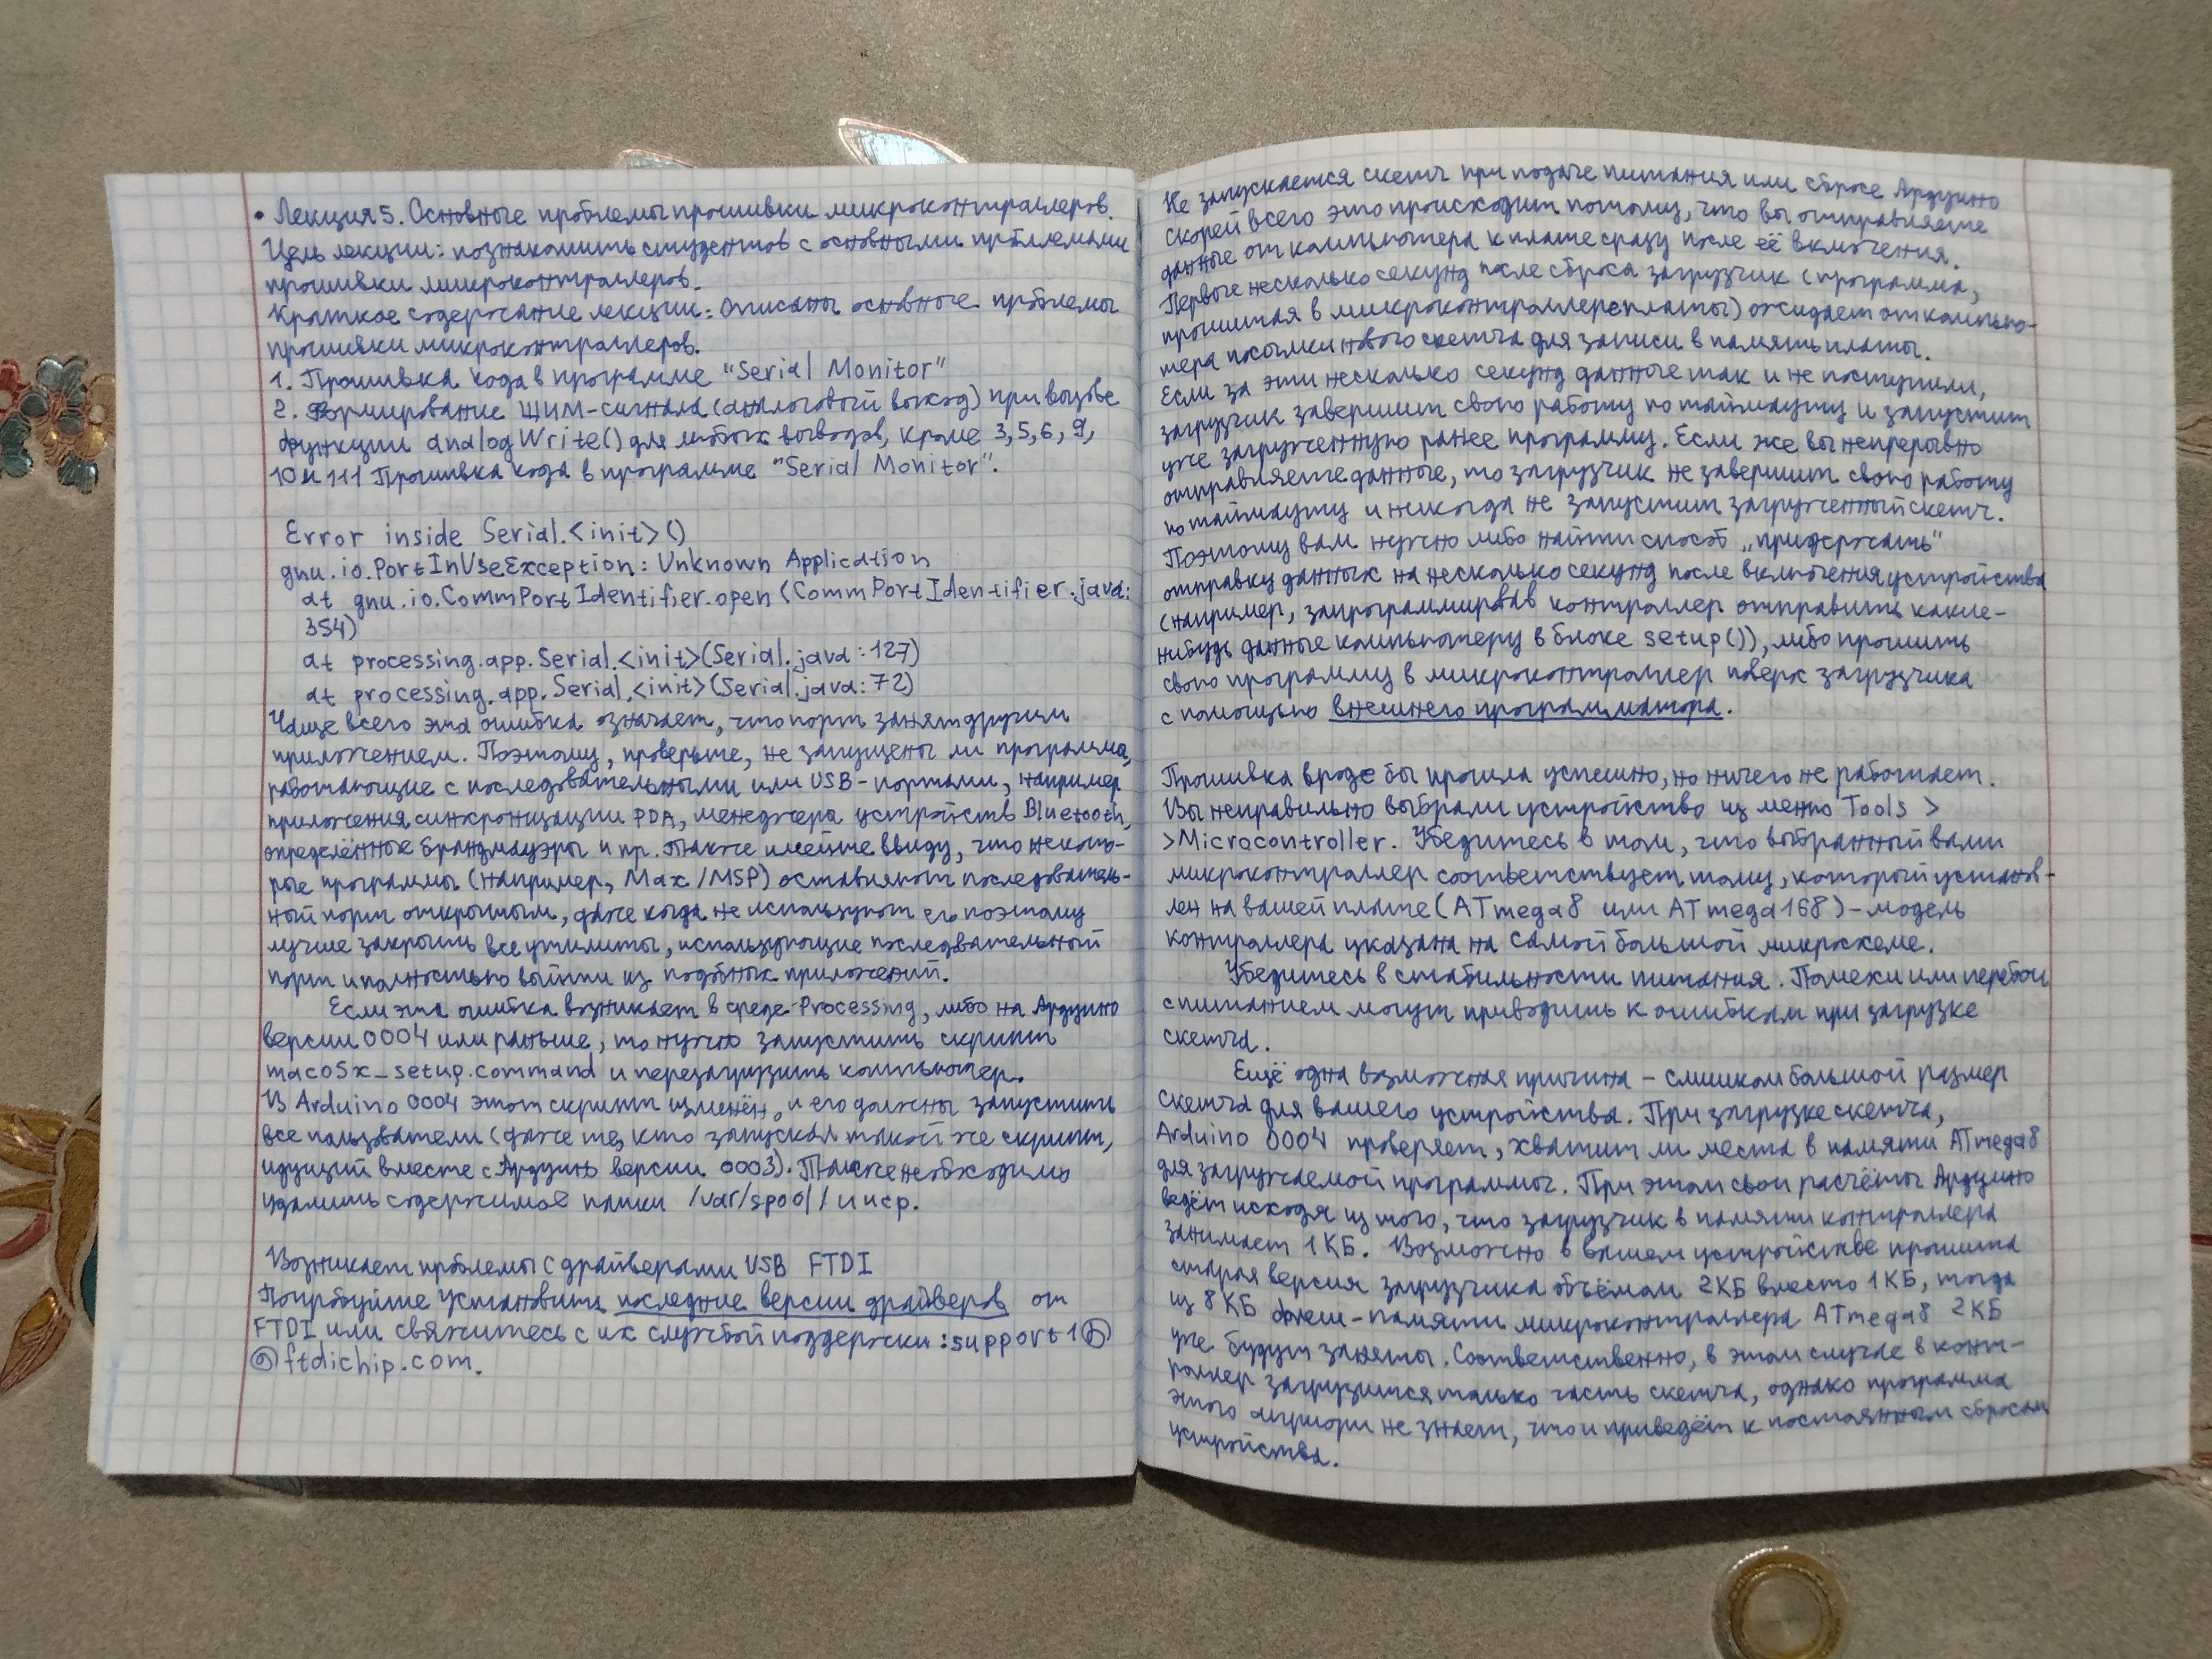 • Лекция 5. Основные проблемы прошивки микроконтроллеров.
Цель лекции: познакомить студентов с основными проблемами
прошивки микроконтроллеров.
Краткое содержание лекции: Описаны основные проблемы
прошивки микроконтроллеров.
1. Прошивка кода в программе "Serial Monitor"
2. Формирование ШИМ-сигнала (аналоговый выход) при вызове
функции analogWrite() для любых выводов, кроме 3, 5, 6, 9,
10 и 111 Прошивка кода в программе "Serial Monitor".
Error inside Serial.<init>()
gnu.io.PortInUseException: Unknown Application
at gnu.io.CommPortIdentifier.open (CommPortIdentifier.java:
354)
at processing.app.Serial.<init>(Serial.java:127)
at processing.app.Serial.<init>(Serial.java:72)
Чаще всего эта ошибка означает, что порт занят другим
приложением. Поэтому, проверьте, не запущены ли программа,
работающие с последовательными или USB-портами, например
приложения синхронизации PDA, менеджера устройств Bluetooth,
определённые брандмауэры и пр. Также имейте ввиду, что некото-
рые программы (например, Max/MSP) оставляют последователь-
ный порт открытым, даже когда не используют его поэтому
лучше закрыть все утилиты, использующие последовательный
порт и полностью выйти из подобных приложений.
Если эта ошибка возникает в среде Processing, либо на Ардуино
версии 0004 или раньше, то нужно запустить скрипт
macosx_setup.command и перезагрузить компьютер.
В Arduino 0004 этот скрипт изменён, и его должны запустить
все пользователи (даже те, кто запускал такой же скрипт,
идущий вместе с Ардуино версии 0003). Также необходимо
удалить содержимое папки /var/spool/uucp.
Возникает проблемы с драйверами USB FTDI
Попробуйте установить последние версии драйверов от
FTDI или свяжитесь с их службой поддержки: support1@
@ftdichip.com.
Не запускается скетч при подаче питания или сбросе Ардуино
Скорей всего это происходит потому, что вы отправляете
данные от компьютера к плате сразу после её включения.
Первые несколько секунд после сброса загрузчик (программа,
прошитая в микроконтроллере платы) ожидает от компью-
тера посылки нового скетча для записи в память платы.
Если за эти несколько секунд данные так и не поступили,
загрузчик завершит свою работу по таймауту и запустит
уже загруженную ранее программу. Если же вы непрерывно
отправляете данные, то загрузчик не завершит свою работу
по таймауту и никогда не запустит загруженный скетч.
Поэтому вам нужно либо найти способ „придержать"
отправку данных на несколько секунд после включения устройства
(например, запрограммировав контроллер отправить какие-
нибудь данные компьютеру в блоке setup()), либо прошить
свою программу в микроконтроллер поверх загрузчика
с помощью внешнего программатора.
Прошивка вроде бы прошла успешно, но ничего не работает.
Вы неправильно выбрали устройство из меню Tools >
>Microcontroller. Убедитесь в том, что выбранный вами
микроконтроллер соответствует тому, который установ-
лен на вашей плате (ATmega8 или ATmega168) - модель
контроллера указана на самой большой микросхеме.
Убедитесь в стабильности питания. Помехи или перебои
с питанием могут приводить к ошибкам при загрузке
скетча.
Ещё одна возможная причина - слишком большой размер
скетча для вашего устройства. При загрузке скетча,
Arduino 0004 проверяет, хватит ли места в памяти ATmega8
для загружаемой программы. При этом свои расчёты Ардуино
ведёт исходя из того, что загрузчик в памяти контроллера
занимает 1 КБ. Возможно в вашем устройстве прошита
старая версия загрузчика объёмом 2КБ вместо 1КБ, тогда
из 8 КБ флеш-памяти микроконтроллера ATmega8 2КБ
уже будут заняты. Соответственно, в этом случае в конт-
роллер загрузится только часть скетча, однако программа
этого априори не знает, что и приведёт к постоянным сбросам
устройства.